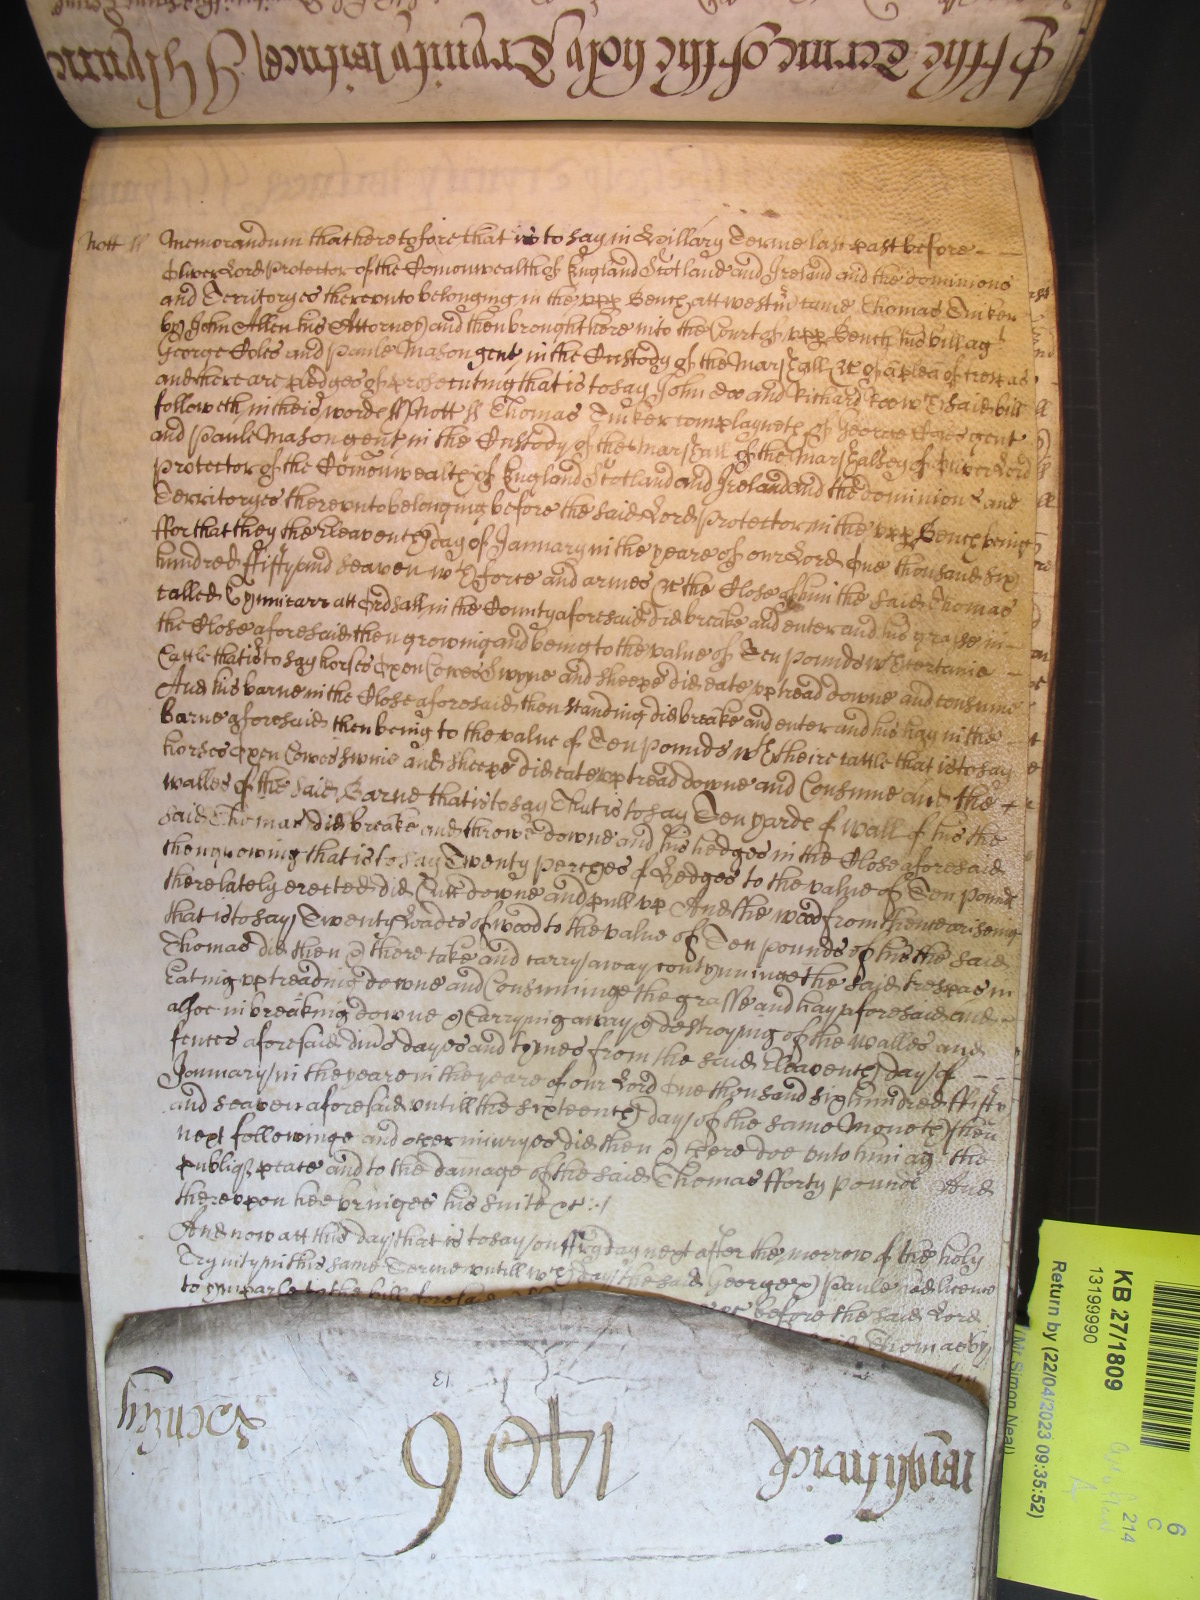 Of the Terme of the holy Trynity witnes J Glynne
Nott ss Memorandum that heretofore that is to say in Hillary Terme last past before
Oliver Lord Protector of the Comonwealth of England Scotland and Ireland and the dominions
and Territoryes thereunto belonging in the upp Bench att Westm came Thomas Tuker
by John Allen his Attorney and then brought here into the Court of upp Bench his bill agt
George Coles and Paule Mason gent in the Custody of the Marshall &c of a plea of trespas
and there are pledges of prosecuting that is to say John doo and Richard Roo wch said bill
followeth in theis wordes ss Nott ss Thomas Tuker complayneth of George Coles gent
and Paule Mason gent in the Custody of the Marshall of the Marshalsey of Oliver Lord
Protector of the Comonwealth of England Scotland and Ireland and the dominions and
Territoryes thereunto belonging before the said Lord Protector in the upp Bench being
ffor that they the Eleaventh day of January in the yeare of our Lord One thousand six
hundred ffifty and seaven wth force and armes &c the Close of him the said Thomas
called att Ordsall in the County aforesaid did breake and enter and his grasse in
the Close aforesaid then growing and being to the value of Ten pounds wth certaine
Cattle that is to say horses Oxen Cowes Swyne and sheepe did eate upp tread downe and consume
And his barne in the Close aforesaid then standing did breake and enter and his hay in the
Barne aforesaid then being to the value of Ten pounds wth theire cattle that is to say
horses Oxen Cowes Swine and sheepe did eate upp tread downe and Consume and the
walles of the said Barne that is to say That is to say Ten yards of wall of his the
said Thomas did breake and throwe downe and his hedges in the Close aforesaid
then growing that is to say Twenty perches of hedges to the value of Ten pounds
there lately erected did Cutt downe and pull up And the wood from thence ariseing
that is to say Twenty loades of wood to the value of Ten pounds of his the said
Thomas did then & there take and carry away contynuinge the said trespas in
Eating up treading downe and Consuminge the grasse and hay aforesaid and
alsoe in breaking downe & Carrying away & destroying of the walles and
fences aforesaid divs dayes and tymes from the said Eleaventh day of
January in the yeare in the yeare of our Lord One thousand six hundred ffifty
and seaven aforesaid untill the sixteenth day of the same Moneth then
next followinge and other iniuryes did then & there doe unto him ag the
publiq peace and to the damage of the said Thomas fforty pounds And
thereupon hee bringes his suite &c
And now att this day that is to say on ffryday next after the morrow of the holy
Trynity in this same Terme untill wch day the said George & Paule had licence
to imparle to the bill aforesaid before the said Lord
Thomas by
13
Twenty 1406 Warwick
KB 27/1809
13199990
Return by (22/04/2023 09:35:52)
(Mr Simon Neal)
6
C
214